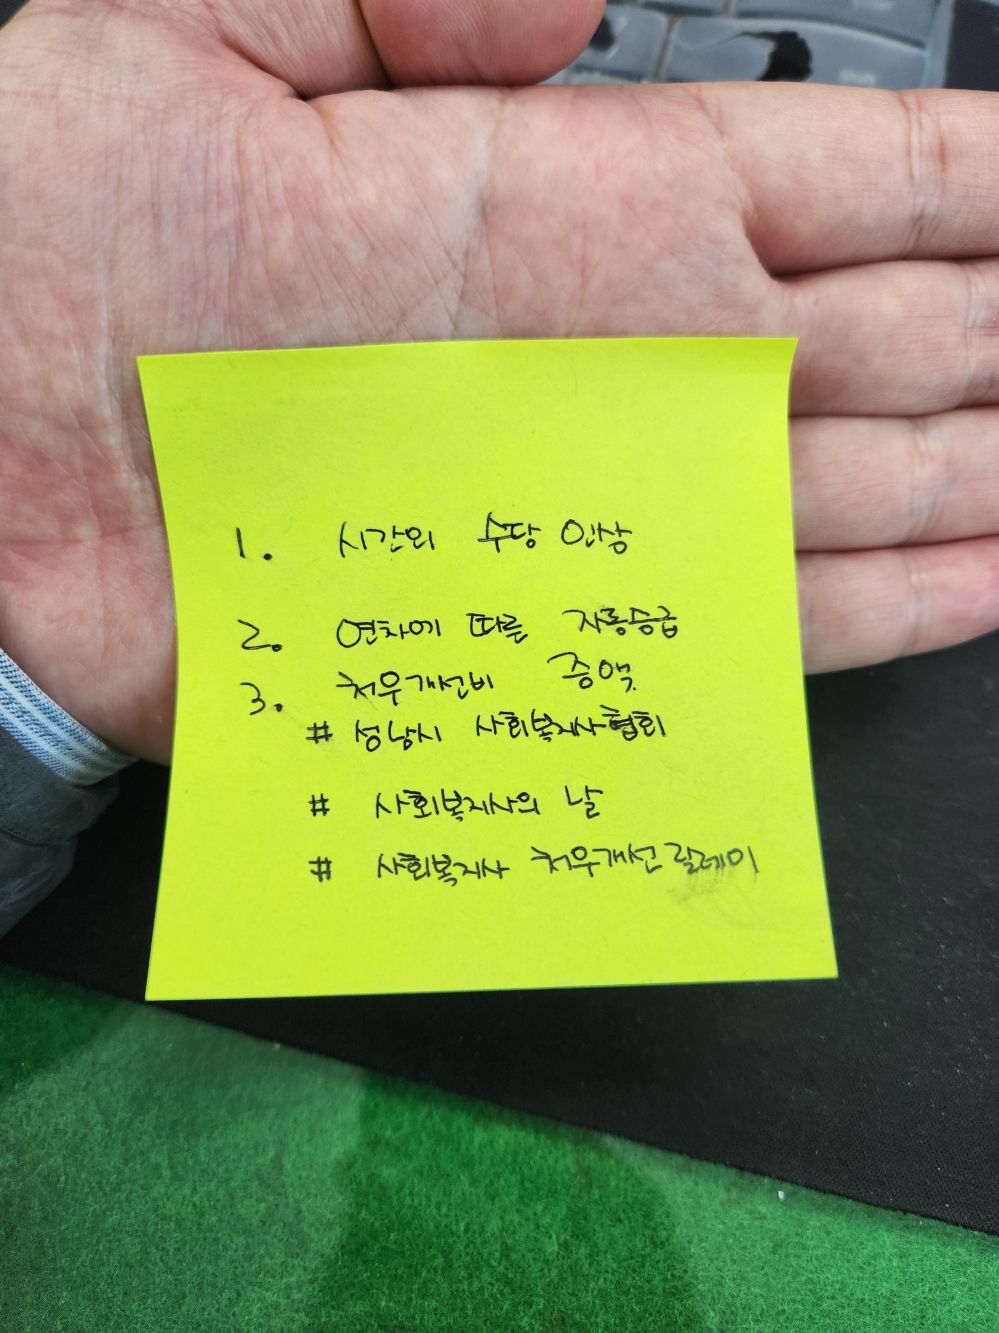 1. 시간외 수당 인상
2. 연차에 따른 자동승급
3. 처우개선비 증액
# 성남시 사회복지사협회
# 사회복지사의 날
# 사회복지사 처우개선 릴레이